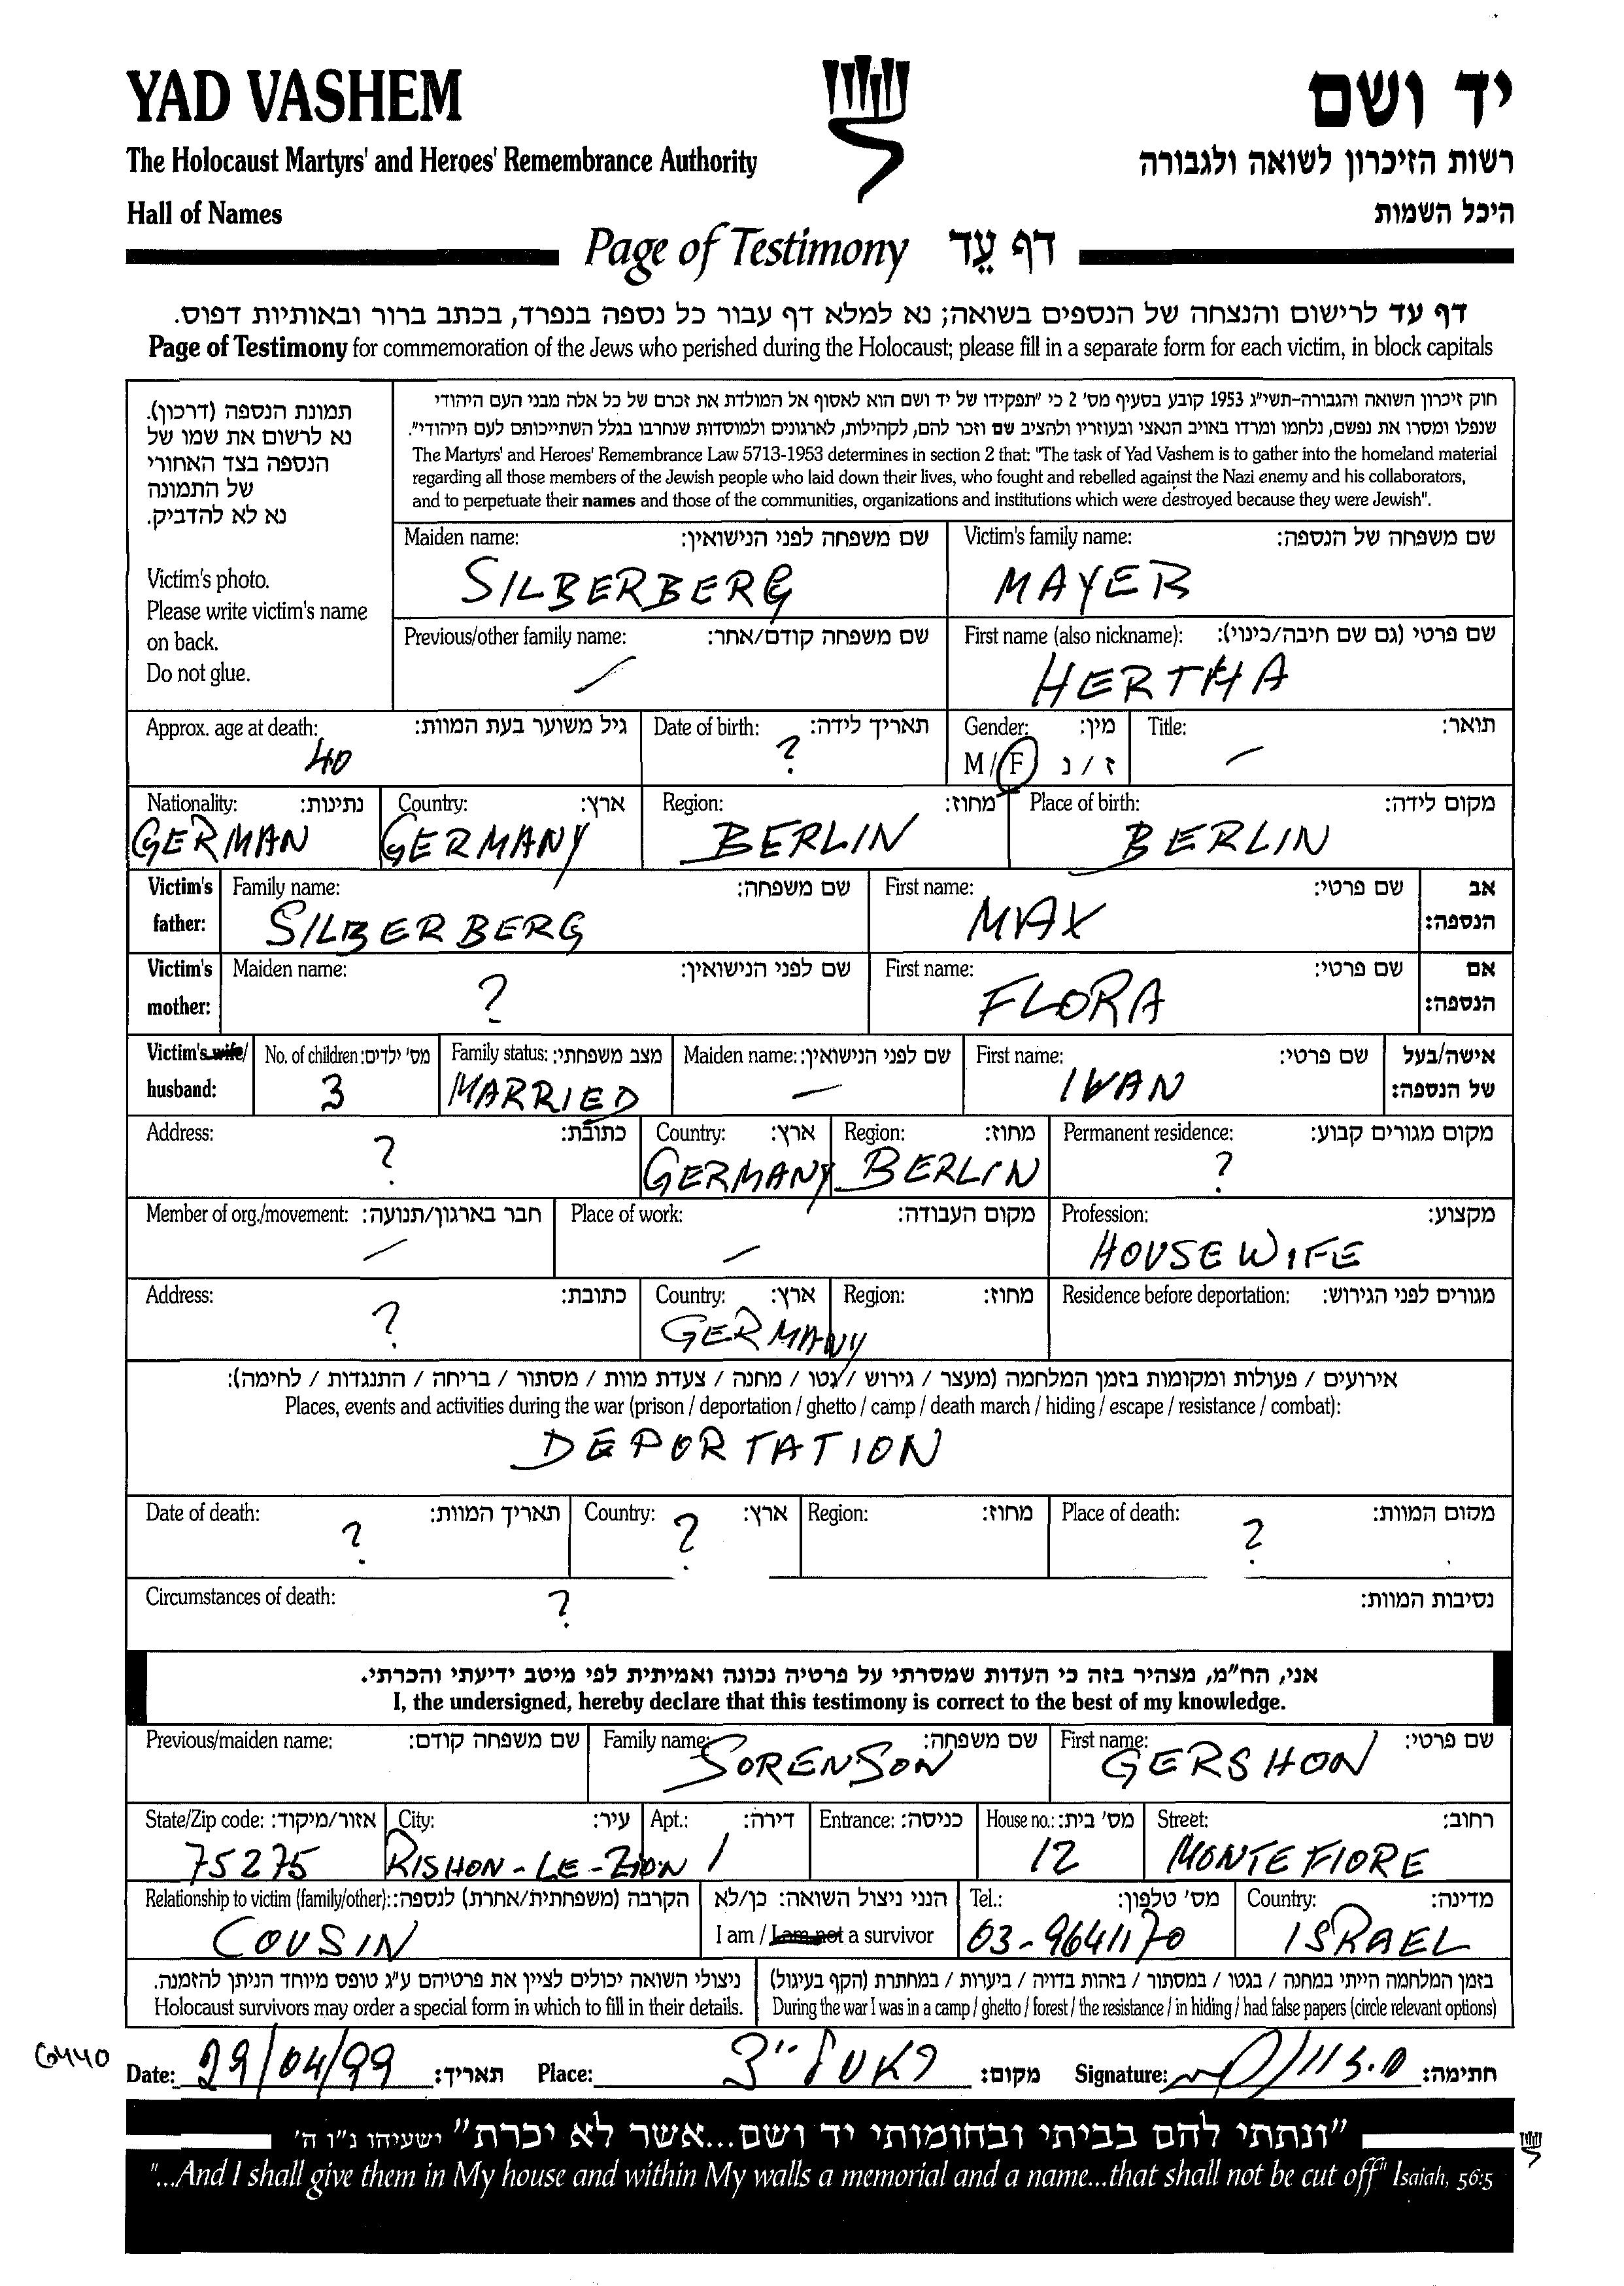 YAD VASHEM
יד ושם
The Holocaust Martyrs' and Heroes' Remembrance Authority
רשות הזיכרון לשואה ולגבורה
Hall of Names
היכל השמות
Page of Testimony דף עֵד
דף עד לרישום והנצחה של הנספים בשואה; נא למלא דף עבור כל נספה בנפרד, בכתב ברור ובאותיות דפוס.
Page of Testimony for commemoration of the Jews who perished during the Holocaust; please fill in a separate form for each victim, in block capitals
תמונת הנספה (דרכון).
נא לרשום את שמו של
הנספה בצד האחורי
של התמונה
נא לא להדביק.
Victim's photo.
Please write victim's name
on back.
Do not glue.
חוק זיכרון השואה והגבורה-תשי"ג 1953 קובע בסעיף מס' 2 כי "תפקידו של יד ושם הוא לאסוף אל המולדת את זכרם של כל אלה מבני העם היהודי
שנפלו ומסרו את נפשם, נלחמו ומרדו באויב הנאצי ובעוזריו ולהציב שם וזכר להם, לקהילות, לארגונים ולמוסדות שנחרבו בגלל השתייכותם לעם היהודי".
The Martyrs' and Heroes' Remembrance Law 5713-1953 determines in section 2 that: "The task of Yad Vashem is to gather into the homeland material
regarding all those members of the Jewish people who laid down their lives, who fought and rebelled against the Nazi enemy and his collaborators,
and to perpetuate their names and those of the communities, organizations and institutions which were destroyed because they were Jewish".
Maiden name: שם משפחה לפני הנישואין: Victim's family name: שם משפחה של הנספה:
SILBERBERG MAYER
Previous/other family name: שם משפחה קודם/אחר: First name (also nickname): שם פרטי (גם שם חיבה/כינוי):
/ HERTHA
Approx. age at death: גיל משוער בעת המוות: Date of birth: תאריך לידה: Gender: מין: Title: תואר:
40 ? M / F ז / נ -
Nationality: נתינות: Country: ארץ: Region: מחוז: Place of birth: מקום לידה:
GERMAN GERMANY BERLIN BERLIN
Victim's father: Family name: שם משפחה: First name: שם פרטי: אב הנספה:
SILBERBERG MAX
Victim's mother: Maiden name: שם לפני הנישואין: First name: שם פרטי: אם הנספה:
? FLORA
Victim's wife/ husband: No. of children: מס' ילדים: Family status: מצב משפחתי: Maiden name: שם לפני הנישואין: First name: שם פרטי: אישה/בעל של הנספה:
3 MARRIED - IWAN
Address: כתובת: Country: ארץ: Region: מחוז: Permanent residence: מקום מגורים קבוע:
? GERMANY BERLIN ?
Member of org./movement: חבר בארגון/תנועה: Place of work: מקום העבודה: Profession: מקצוע:
- - HOUSEWIFE
Address: כתובת: Country: ארץ: Region: מחוז: Residence before deportation: מגורים לפני הגירוש:
? GERMANY
אירועים / פעולות ומקומות בזמן המלחמה (מעצר / גירוש / גטו / מחנה / צעדת מוות / מסתור / בריחה / התנגדות / לחימה):
Places, events and activities during the war (prison / deportation / ghetto / camp / death march / hiding / escape / resistance / combat):
DEPORTATION
Date of death: תאריך המוות: Country: ארץ: Region: מחוז: Place of death: מקום המוות:
? ? ?
Circumstances of death: ? נסיבות המוות:
אני, הח"מ, מצהיר בזה כי העדות שמסרתי על פרטיה נכונה ואמיתית לפי מיטב ידיעתי והכרתי.
I, the undersigned, hereby declare that this testimony is correct to the best of my knowledge.
Previous/maiden name: שם משפחה קודם: Family name: שם משפחה: First name: שם פרטי:
SORENSON GERSHON
State/Zip code: אזור/מיקוד: City: עיר: Apt.: דירה: Entrance: כניסה: House no.: מס' בית: Street: רחוב:
75275 RISHON-LE-ZION 1 12 MONTEFIORE
Relationship to victim (family/other): הקרבה (משפחתית/אחרת) לנספה: הנני ניצול השואה: כן/לא Tel.: מס' טלפון: Country: מדינה:
COUSIN I am / I am not a survivor 03-9641170 ISRAEL
ניצולי השואה יכולים לציין את פרטיהם ע"ג טופס מיוחד הניתן להזמנה. בזמן המלחמה הייתי במחנה / בגטו / במסתור / בזהות בדויה / ביערות / במחתרת (הקף בעיגול)
Holocaust survivors may order a special form in which to fill in their details. During the war I was in a camp / ghetto / forest / the resistance / in hiding / had false papers (circle relevant options)
G440
Date: 29/04/99 תאריך: Place: ראשל"צ מקום: Signature: חתימה:
"ונתתי להם בביתי ובחומותי יד ושם...אשר לא יכרת" ישעיהו נ"ו ה'
"...And I shall give them in My house and within My walls a memorial and a name...that shall not be cut off" Isaiah, 56:5